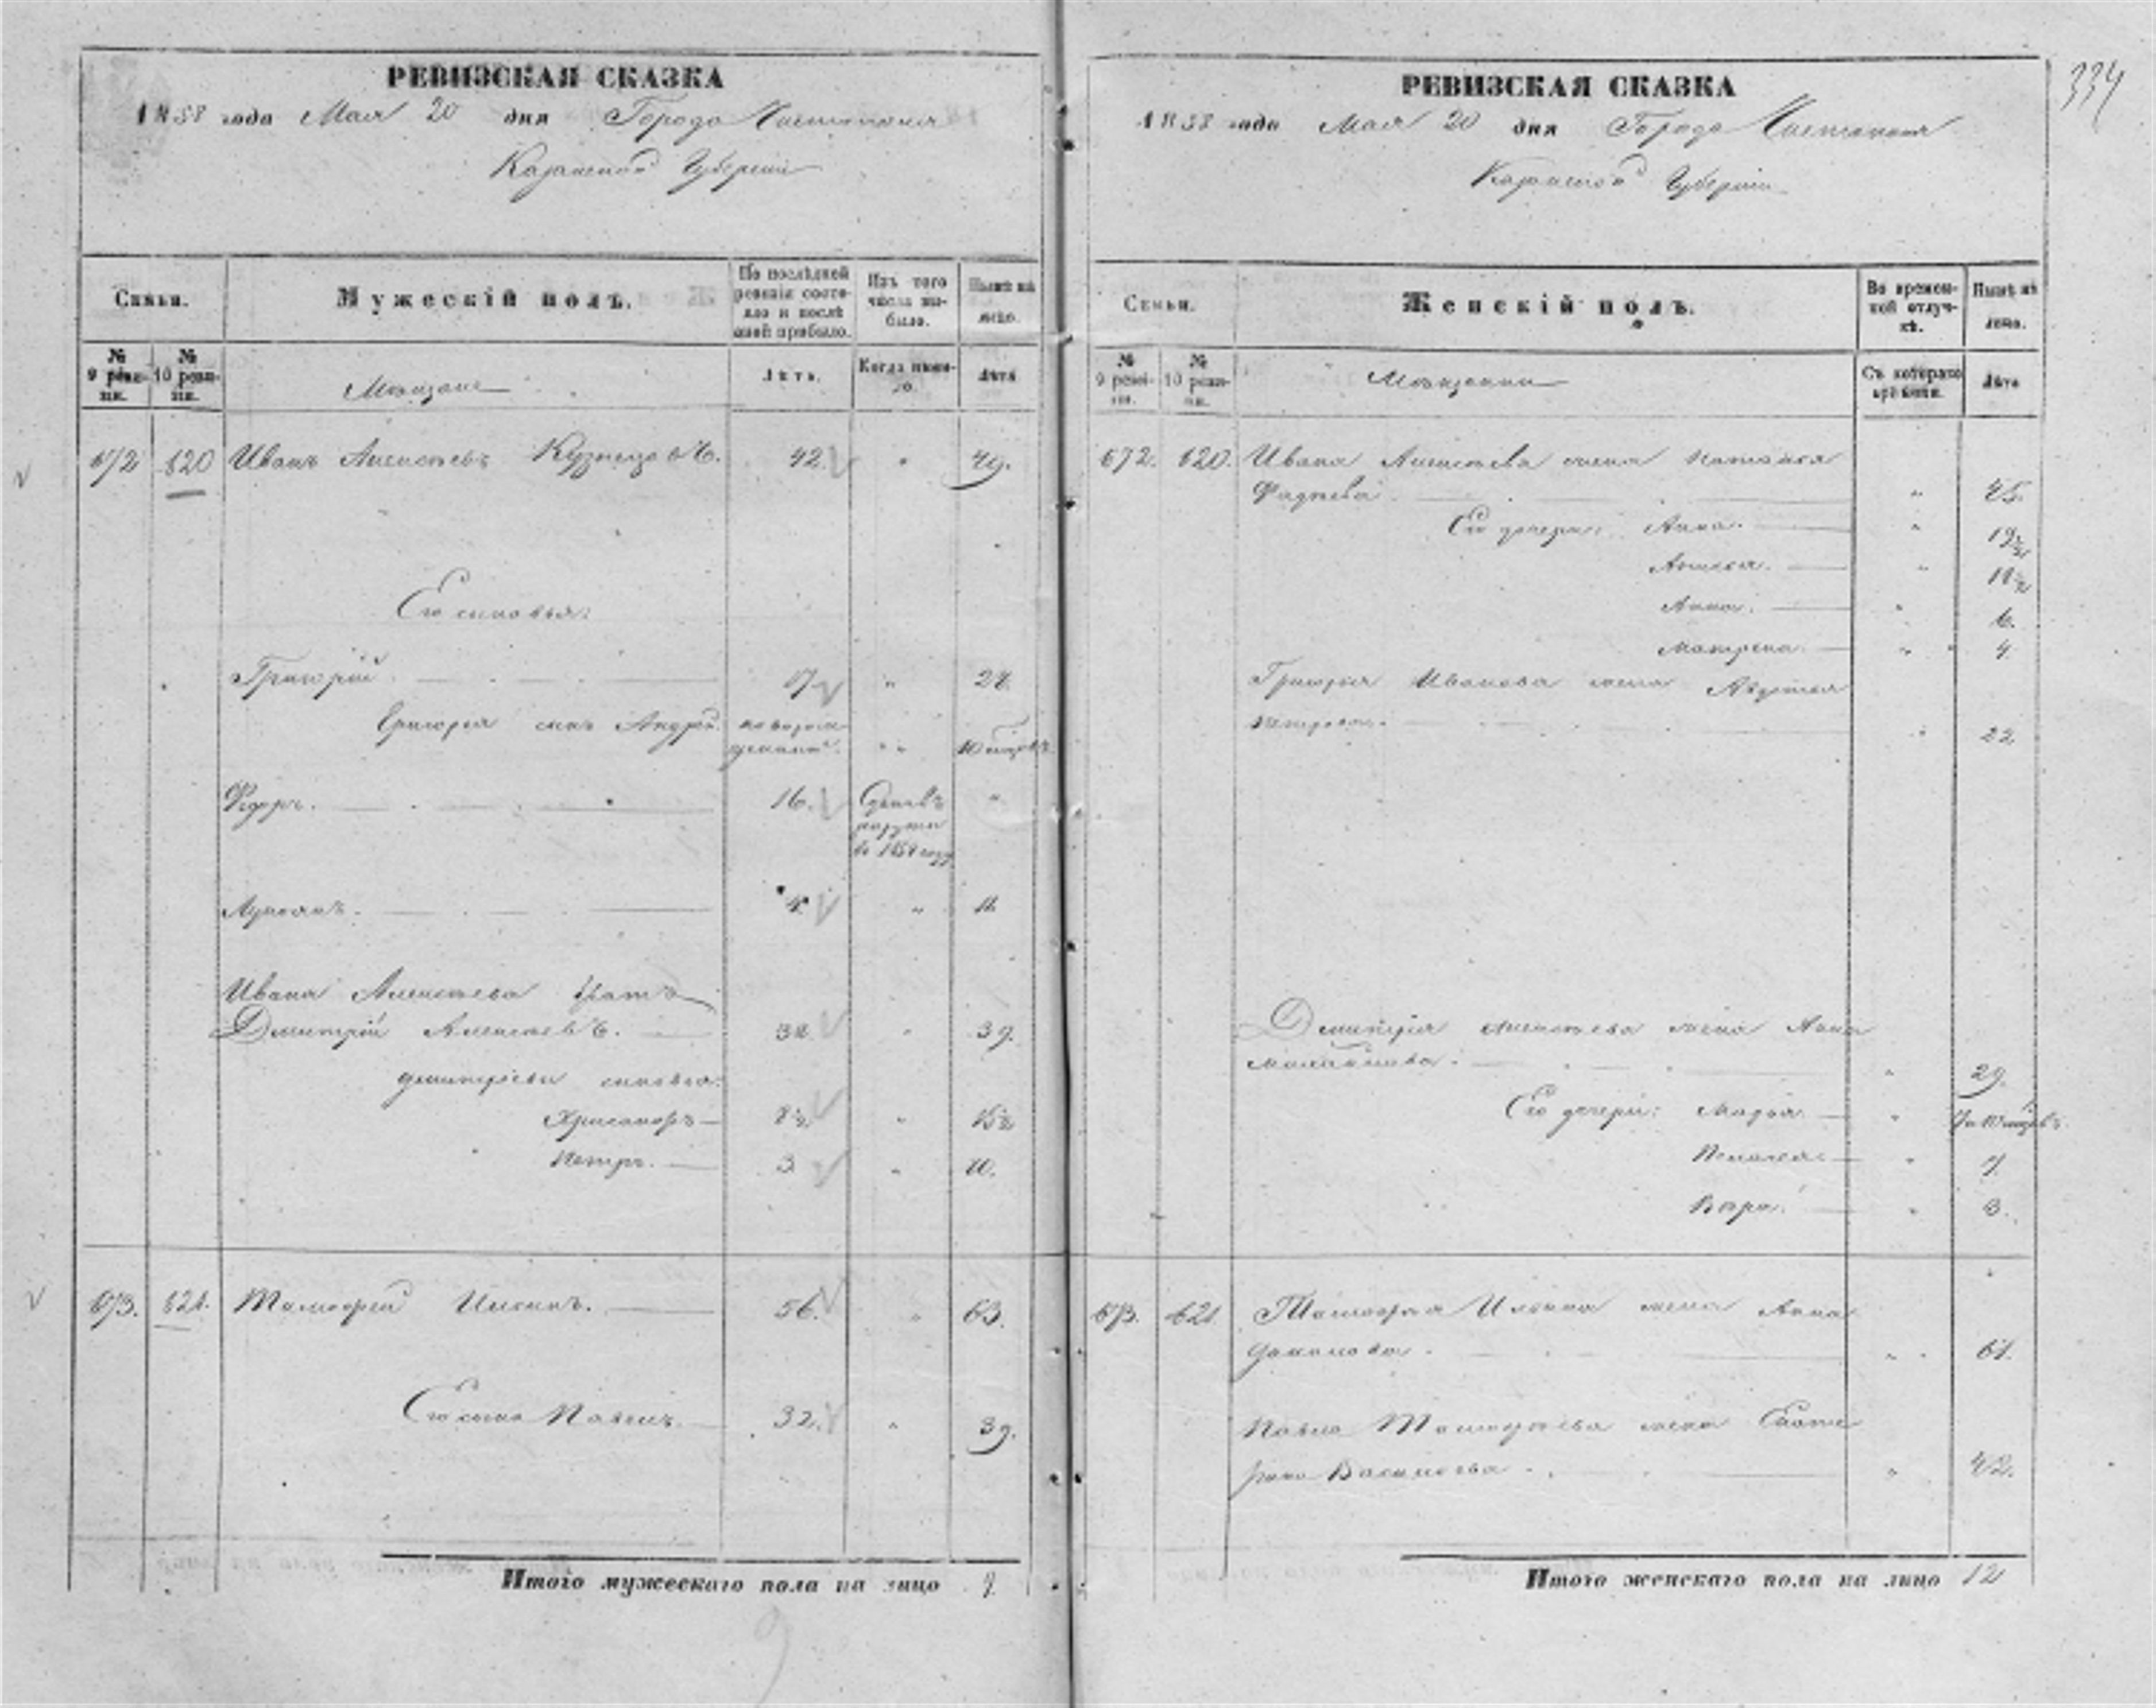 334
РЕВИЗСКАЯ СКАЗКА
1858 года Мая 20 дня Города Чистополя
Казанской Губерніи
Семьи.
Мужескій полъ.
По послѣдней ревизіи состояло и послѣ оной прибыло.
Изъ того числа выбыло.
Нынѣ на лицо.
№ 9 ревизіи.
№ 10 ревизіи.
Мѣщане
Лѣта.
Когда именно.
Лѣта
672 620 Иванъ Алексѣевъ Кузнецовъ. 42. " 49.
Его сыновья:
Григорій. 17 " 24.
Григорья сынъ Андрей. новорожденный. " 10 мѣсяцъ
Федоръ. 16. Сданъ въ рекруты въ 1854 году "
4. " 11.
Ивана Алексѣева братъ
Дмитрій Алексѣевъ. 32 " 39.
Дмитріевы сыновья:
Хрисанфъ 8½ " 15½
Петръ. 3 " 10.
673. 621. Тимофей Ильинъ. 56. " 63.
Его сынъ Павелъ. 32. " 39.
Итого мужескаго пола на лицо 9
9
РЕВИЗСКАЯ СКАЗКА
1858 года Мая 20 дня Города Чистополя
Казанской Губерніи
Семьи.
Женскій полъ.
Во временной отлучкѣ.
Нынѣ на лицо.
№ 9 ревизіи.
№ 10 ревизіи.
Мѣщанки
Съ котораго времени.
Лѣта
672. 620. Ивана Алексѣева жена Наталья
Фадѣева. " 45.
Его дочери: Анна. " 19½
" 11½
Анна. " 6.
Матрена. " 4.
Григорья Иванова жена Авдотья
Петрова. " 22.
Дмитрія Алексѣева жена Анна
" 29.
Его дочери: Марья. "
Пелагея " 7.
Вѣра. " 3.
673. 621. Тимофея Ильина жена Анна
" 61.
Павла Тимофѣева жена Екате
рина Васильева. " 42.
Итого женскаго пола на лицо 12